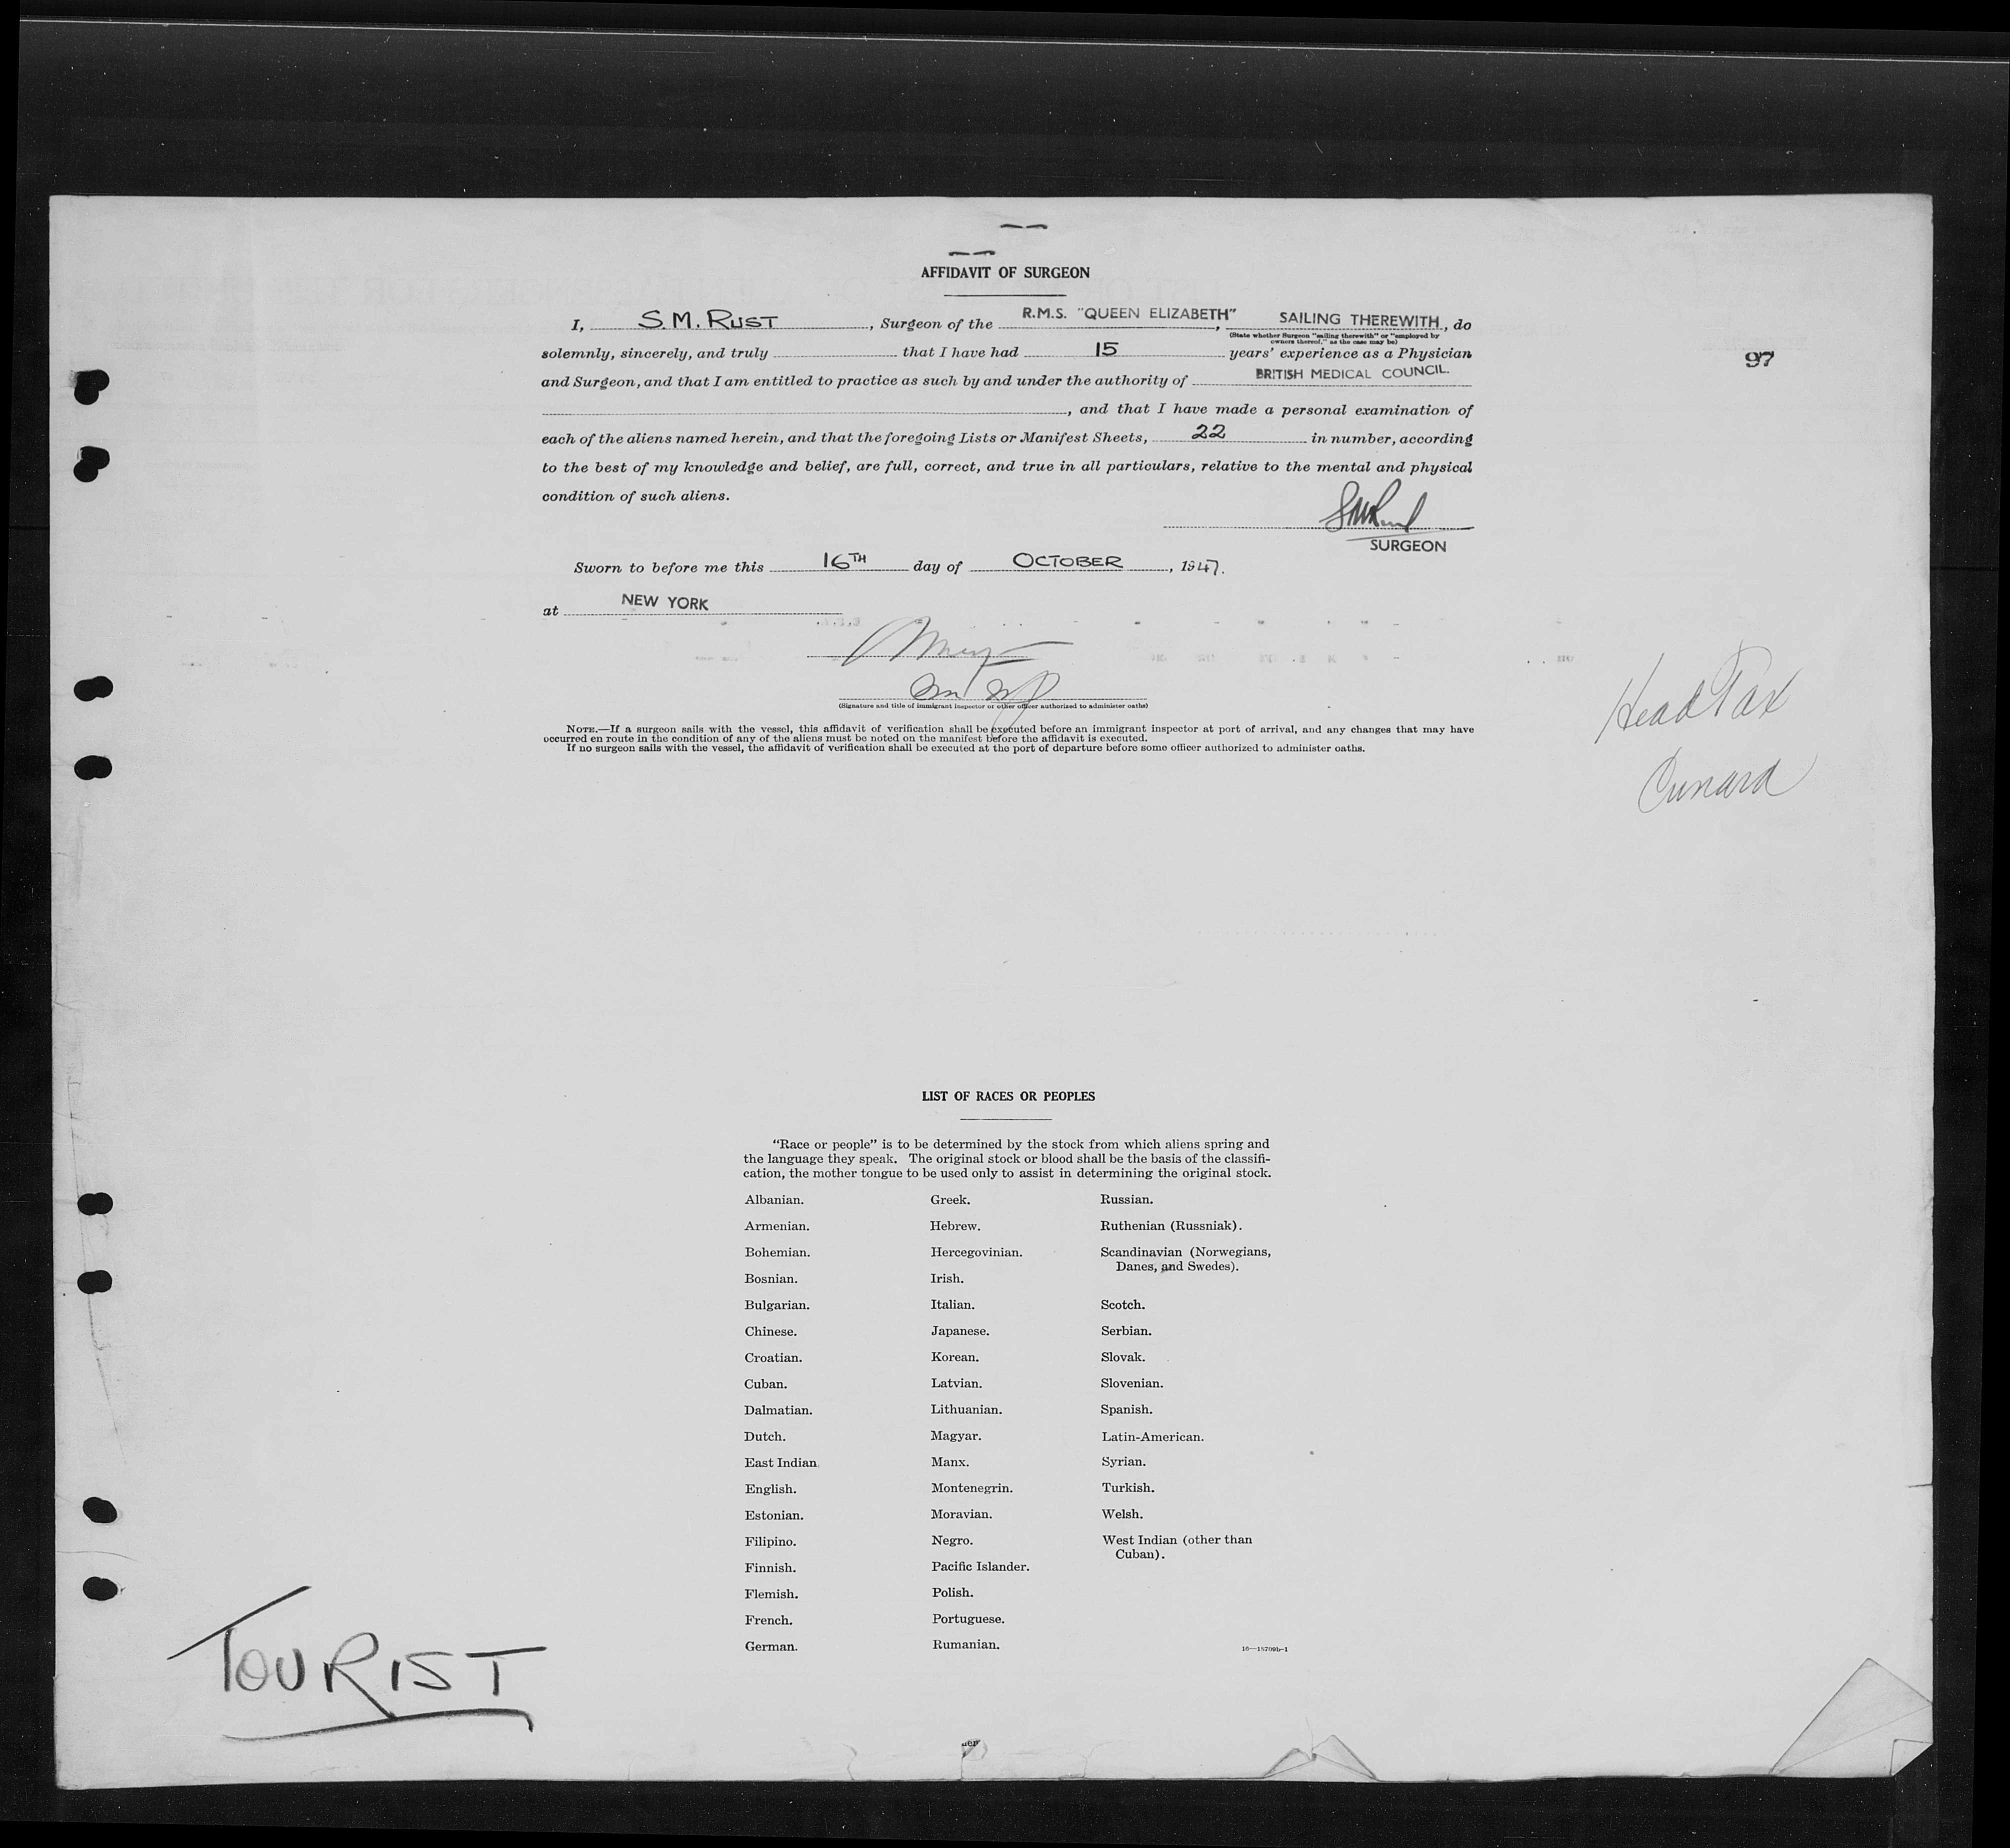 AFFIDAVIT OF SURGEON
I, S. M. RUST, Surgeon of the R.M.S. "QUEEN ELIZABETH", SAILING THEREWITH, do
(State whether Surgeon "sailing therewith" or "employed by
owners thereof," as the case may be)
solemnly, sincerely, and truly that I have had 15 years' experience as a Physician
97
and Surgeon, and that I am entitled to practice as such by and under the authority of BRITISH MEDICAL COUNCIL.
, and that I have made a personal examination of
each of the aliens named herein, and that the foregoing Lists or Manifest Sheets, 22 in number, according
to the best of my knowledge and belief, are full, correct, and true in all particulars, relative to the mental and physical
condition of such aliens.
SMRust
SURGEON
Sworn to before me this 16TH day of OCTOBER, 1947.
at NEW YORK
(Signature and title of immigrant inspector or other officer authorized to administer oaths)
Head Tax
Cunard
NOTE.—If a surgeon sails with the vessel, this affidavit of verification shall be executed before an immigrant inspector at port of arrival, and any changes that may have
occurred en route in the condition of any of the aliens must be noted on the manifest before the affidavit is executed.
If no surgeon sails with the vessel, the affidavit of verification shall be executed at the port of departure before some officer authorized to administer oaths.
LIST OF RACES OR PEOPLES
"Race or people" is to be determined by the stock from which aliens spring and
the language they speak. The original stock or blood shall be the basis of the classifi-
cation, the mother tongue to be used only to assist in determining the original stock.
Albanian.
Armenian.
Bohemian.
Bosnian.
Bulgarian.
Chinese.
Croatian.
Cuban.
Dalmatian.
Dutch.
East Indian
English.
Estonian.
Filipino.
Finnish.
Flemish.
French.
German.
Greek.
Hebrew.
Hercegovinian.
Irish.
Italian.
Japanese.
Korean.
Latvian.
Lithuanian.
Magyar.
Manx.
Montenegrin.
Moravian.
Negro.
Pacific Islander.
Polish.
Portuguese.
Rumanian.
Russian.
Ruthenian (Russniak).
Scandinavian (Norwegians,
Danes, and Swedes).
Scotch.
Serbian.
Slovak.
Slovenian.
Spanish.
Latin-American.
Syrian.
Turkish.
Welsh.
West Indian (other than
Cuban).
16—15709b-1
TOURIST